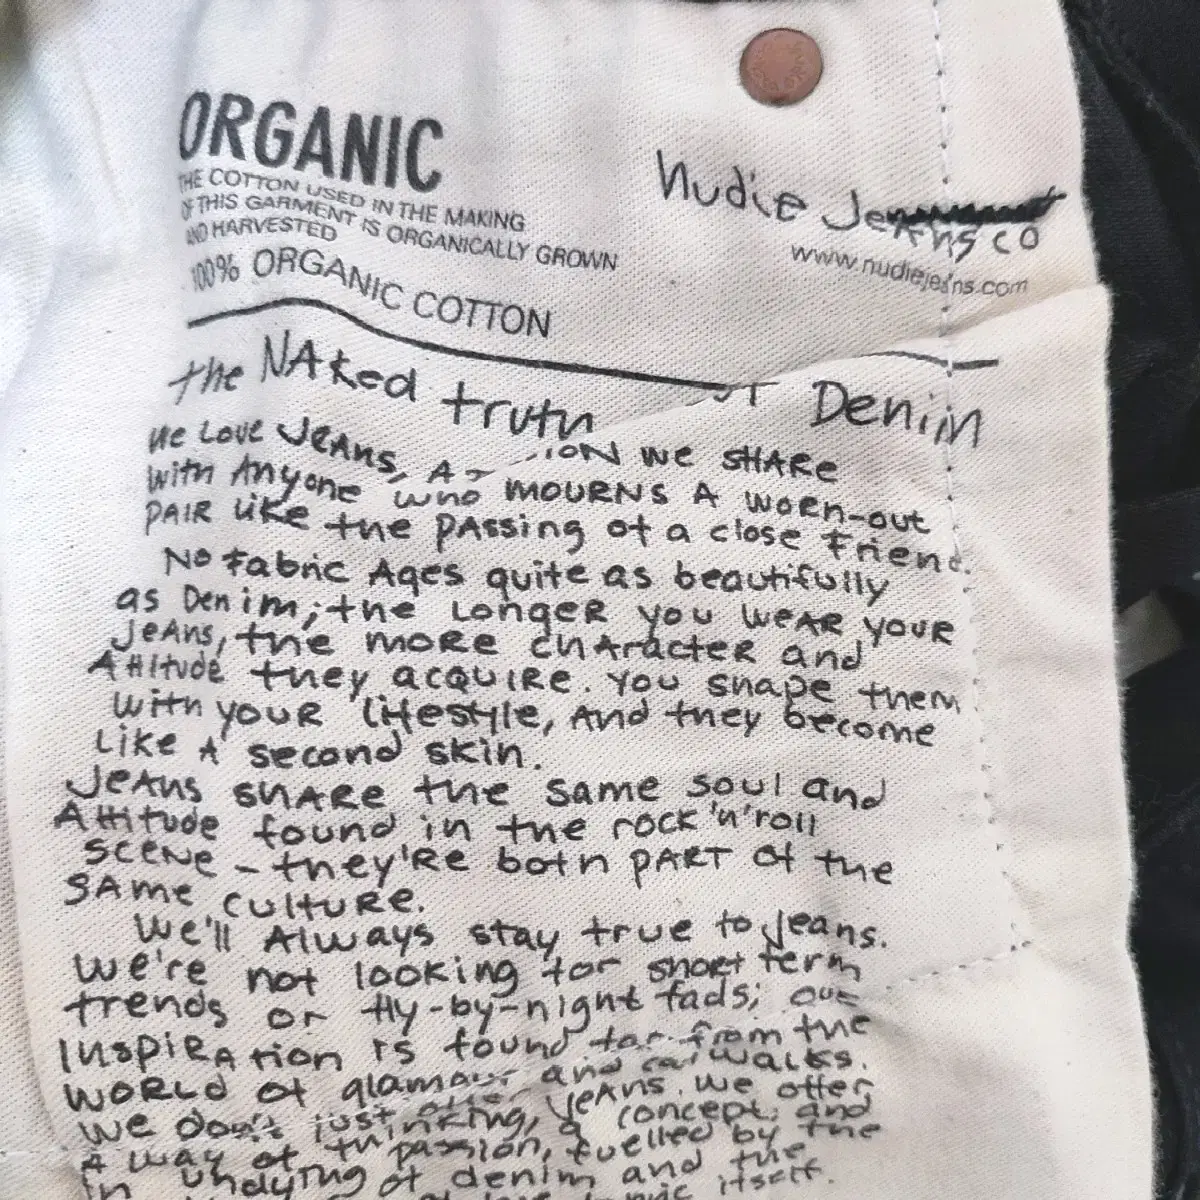 ORGANIC
THE COTTON USED IN THE MAKING
OF THIS GARMENT IS ORGANICALLY GROWN
AND HARVESTED
100% ORGANIC COTTON
Nudie Jeans co
www.nudiejeans.com
the NAked truth Denim
We Love JeAns, A ION we SHARe
with Anyone who MOURNS A worn-out
PAIR like the pAssing of a close friend.
No fabric Ages quite as beautifully
as Denim; the Longer you weAR your
JeAns, the more chAracteR and
Attitude they acquire. You shape them
with your lifestyle, And they become
Like A second skin.
JeAns shARe the same soul and
Attitude found in the rock 'n' roll
sceNe - they'Re both pART of the
sAme cultuRe.
We'll Always stay true to Jeans.
We're not looking for short term
trends or fly-by-night fads; our
InspiRAtion is found far from the
woRLD of glamour and catwalks.
We don't just offer JeAns. We offer
A way of thinking, a concept; and
in passion, fuelled by the
undying of denim and the
itself.